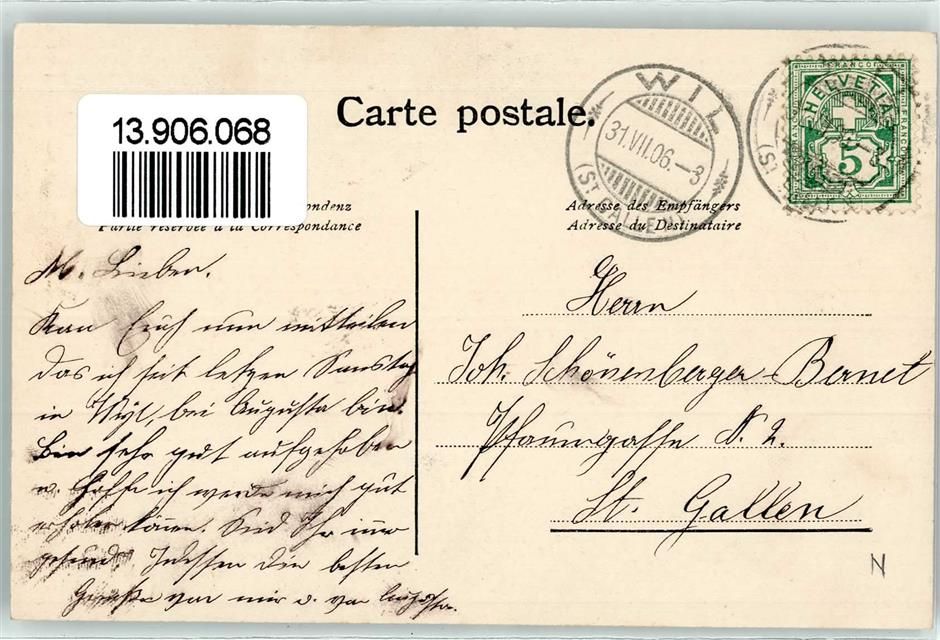 13.906.068
Carte postale.
WIL
31.VII.06.-3
(ST GALLEN)
HELVETIA
FRANCO
5
ondenz
Partie réservée à la Correspondance
Adresse des Empfängers
Adresse du Destinataire
M. Lieben.
Kan Euch nun mitteilen
das ich seit letzen Samstag
in Wyl, bei Augusta bin.
Bin sehr gut aufgehoben
u. hoffe ich werde mich gut
erholen können. Sind Ihr nur
gesund. Indessen die besten
Grüsse von mir u. von Augusta.
Herrn
Joh. Schönenberger Bernet
N. 2.
St. Gallen
N